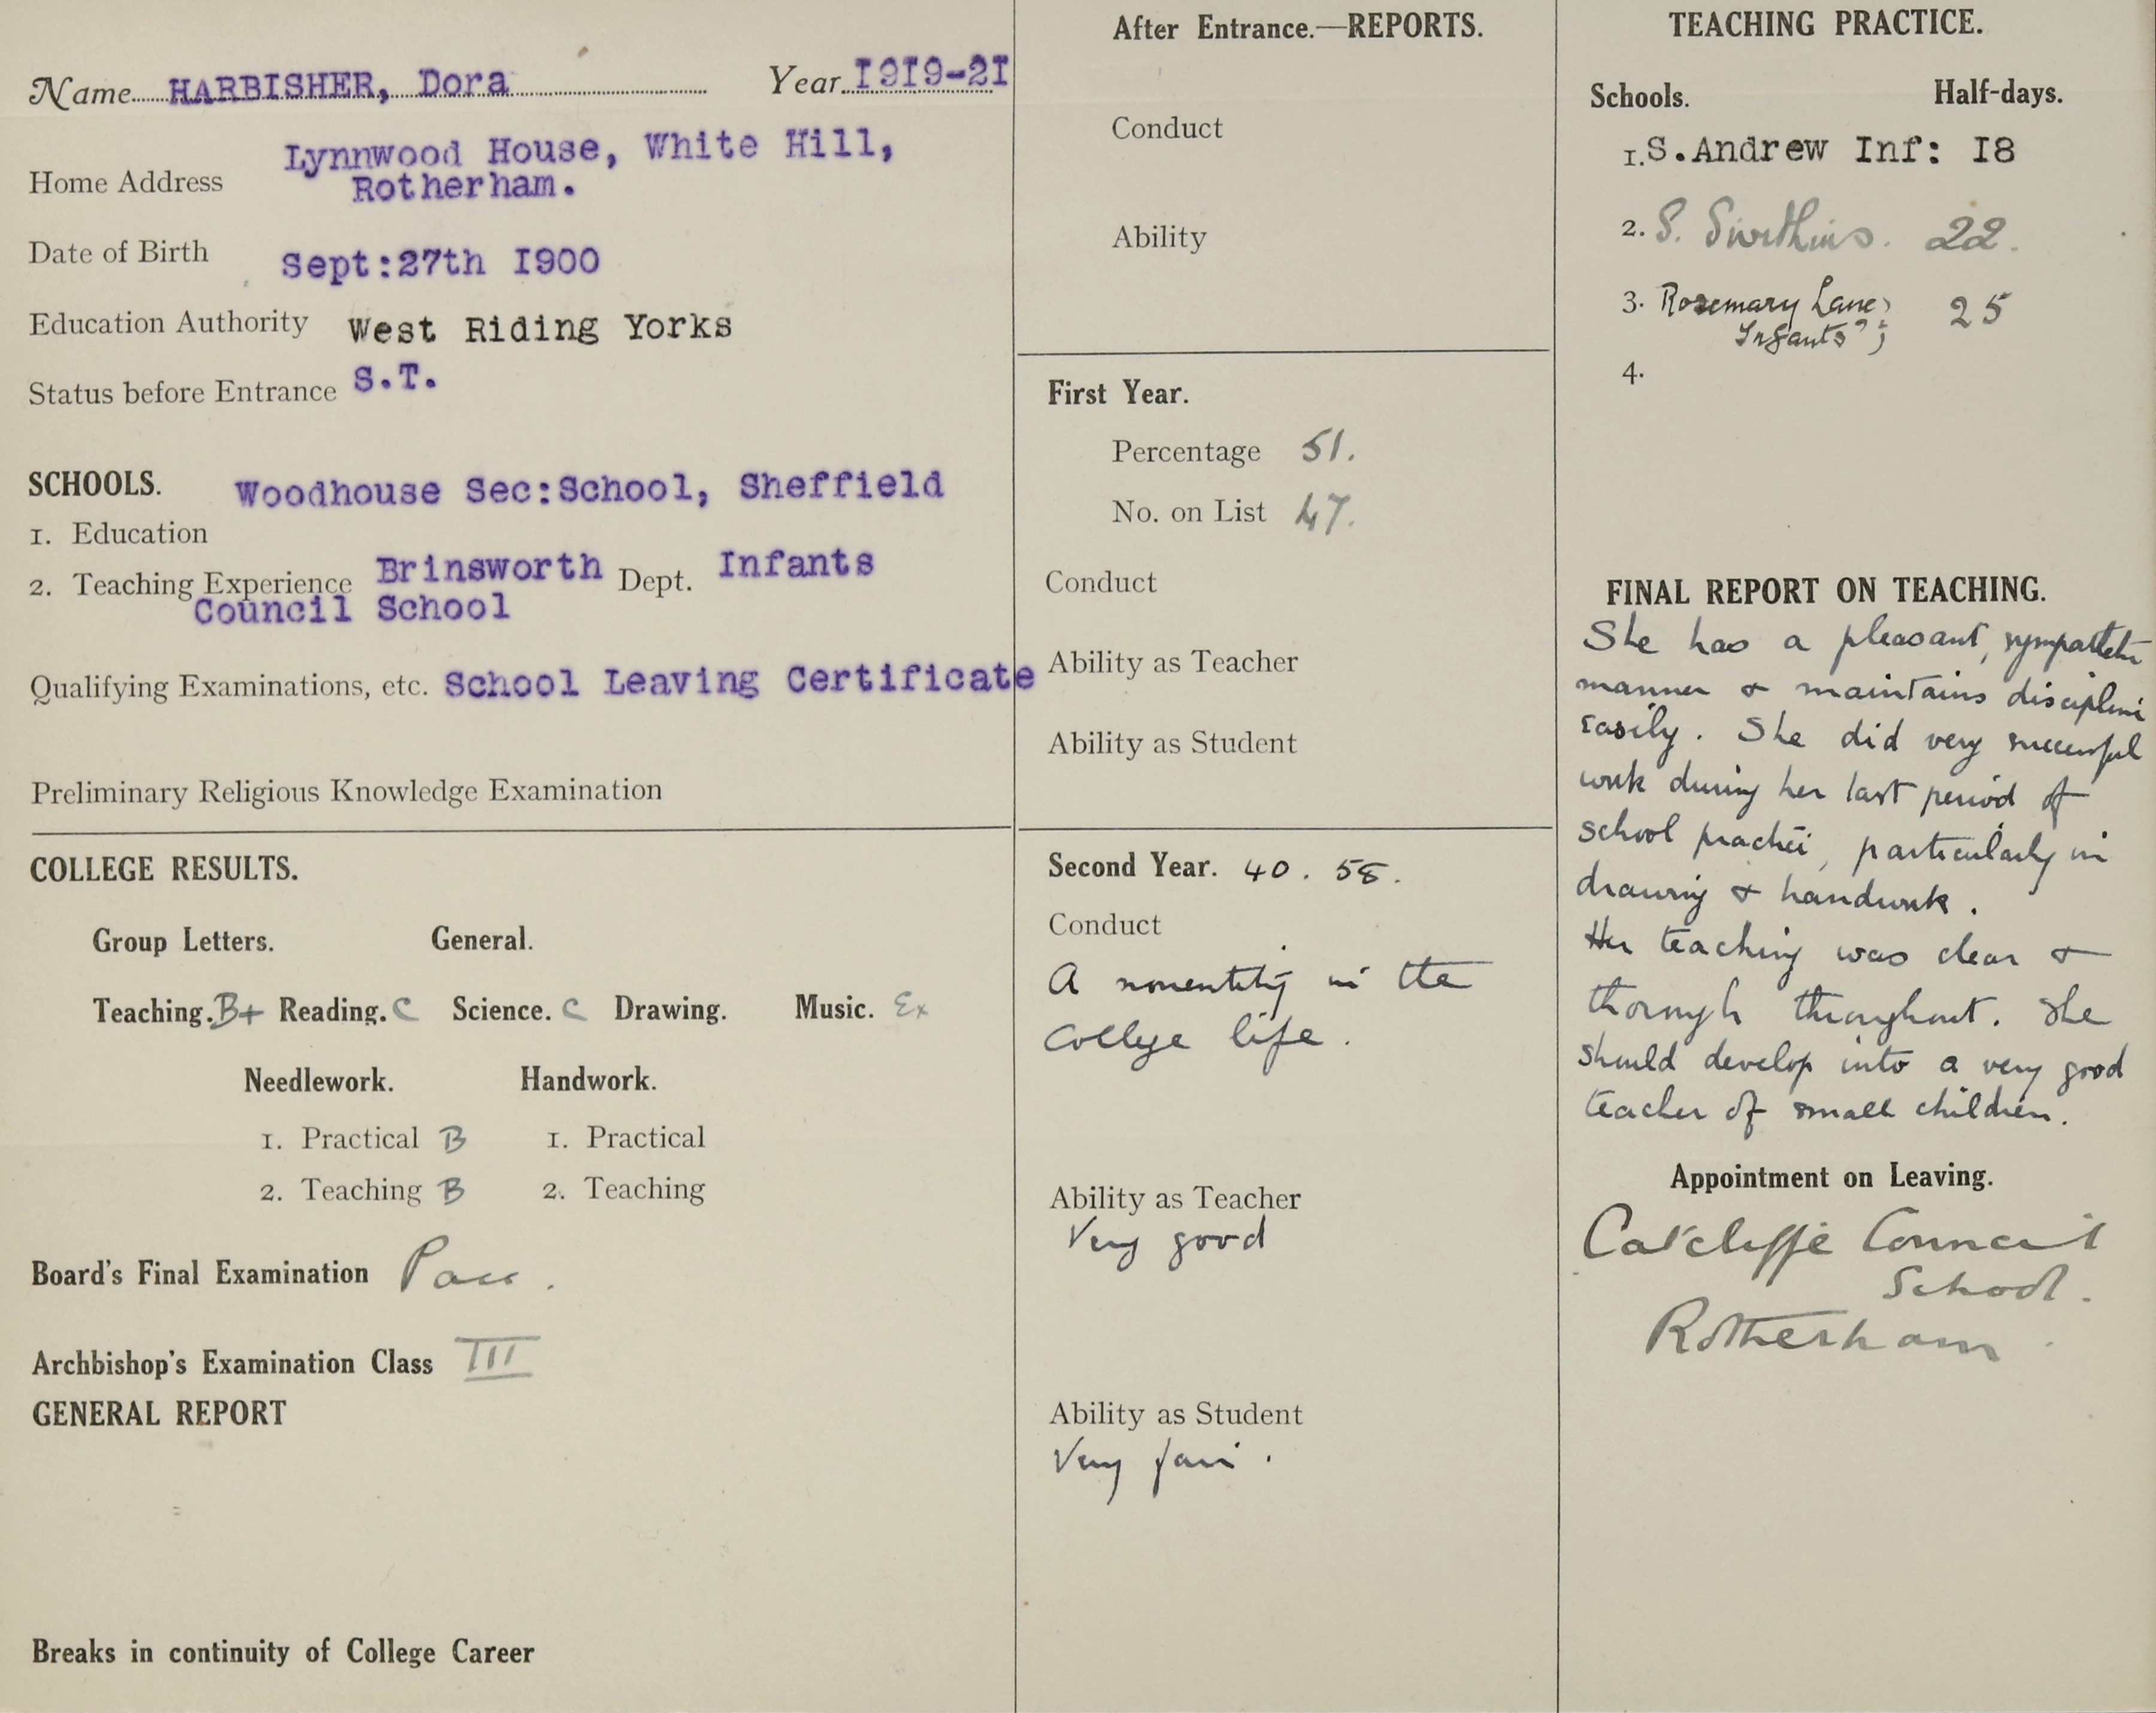 Name HARBISHER, Dora Year 1919-21
Home Address Lynnwood House, White Hill,
Rotherham.
Date of Birth Sept:27th 1900
Education Authority West Riding Yorks
Status before Entrance S.T.
SCHOOLS.
Woodhouse Sec:School, Sheffield
1. Education
2. Teaching Experience Brinsworth Dept. Infants
Council School
Qualifying Examinations, etc. School Leaving Certificate
Preliminary Religious Knowledge Examination
COLLEGE RESULTS.
Group Letters. General.
Teaching. B+ Reading. C Science. C Drawing. Music. Ex
Needlework. Handwork.
1. Practical B 1. Practical
2. Teaching B 2. Teaching
Board's Final Examination Pass.
Archbishop's Examination Class III
GENERAL REPORT
Breaks in continuity of College Career
After Entrance.—REPORTS.
Conduct
Ability
First Year.
Percentage 51.
No. on List 47.
Conduct
Ability as Teacher
Ability as Student
Second Year. 40. 58.
Conduct
A nonentity in the
College life.
Ability as Teacher
Very good
Ability as Student
Very fair.
TEACHING PRACTICE.
Schools. Half-days.
1. S.Andrew Inf: 18
2. S. Swithins. 22.
3. Rosemary Lane, 25
Infants
4.
FINAL REPORT ON TEACHING.
She has a pleasant, sympathetic
manner & maintains discipline
easily. She did very successful
work during her last period of
school practice, particularly in
drawing & handwork.
Her teaching was clear &
thorough throughout. She
should develop into a very good
teacher of small children.
Appointment on Leaving.
Catcliffe Council
School.
Rotherham.